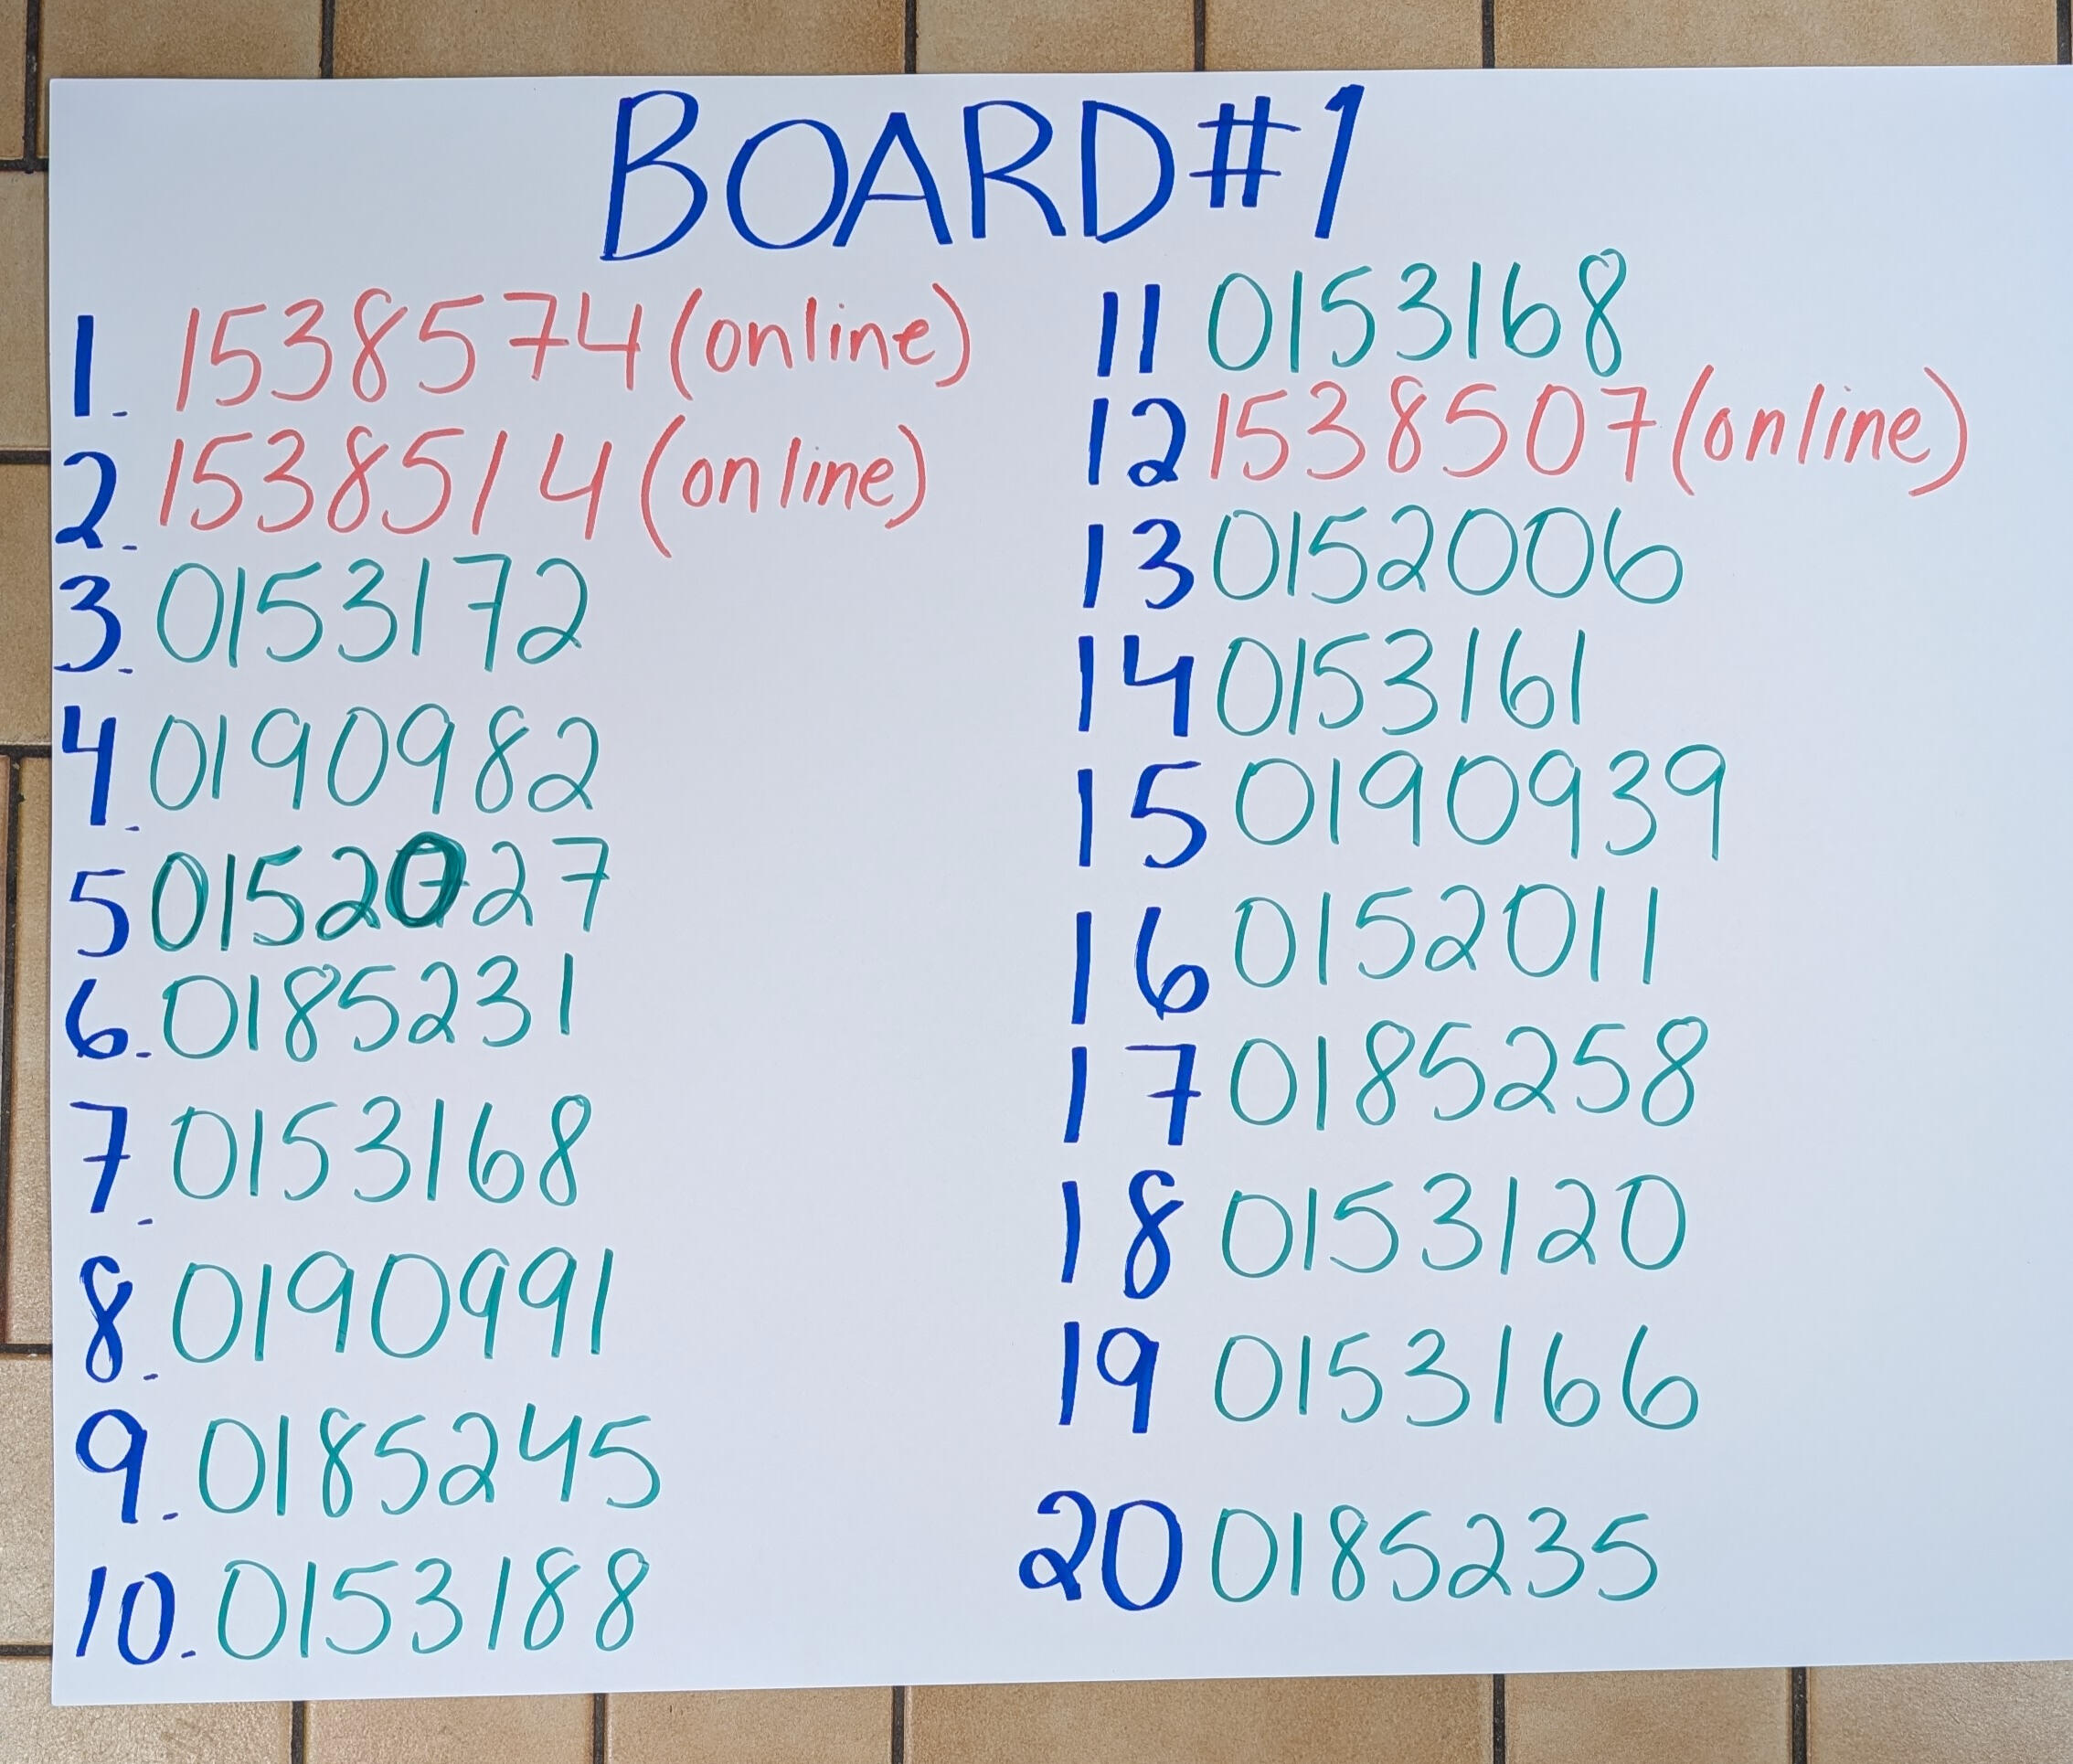 BOARD#1
1. 1538574 (online)
2. 1538514 (online)
3. 0153172
4. 0190982
5 0152027
6. 0185231
7. 0153168
8. 0190991
9. 0185245
10. 0153188
11 0153168
12 1538507 (online)
13 0152006
14 0153161
15 0190939
16 0152011
17 0185258
18 0153120
19 0153166
20 0185235